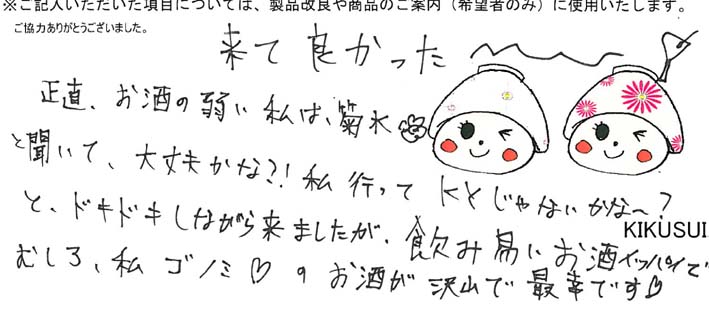 ※ご記入いただいた項目については、製品改良や商品のご案内（希望者のみ）に使用いたします。
ご協力ありがとうございました。
来て良かった
正直、お酒の弱い私は、菊水
と聞いて、大丈夫かな?!私行ってKYじゃないかな〜?
と、ドキドキしながら来ましたが、飲み易いお酒イッパイで
KIKUSUI
むしろ、私ゴノミ♡のお酒が沢山で最幸です♡